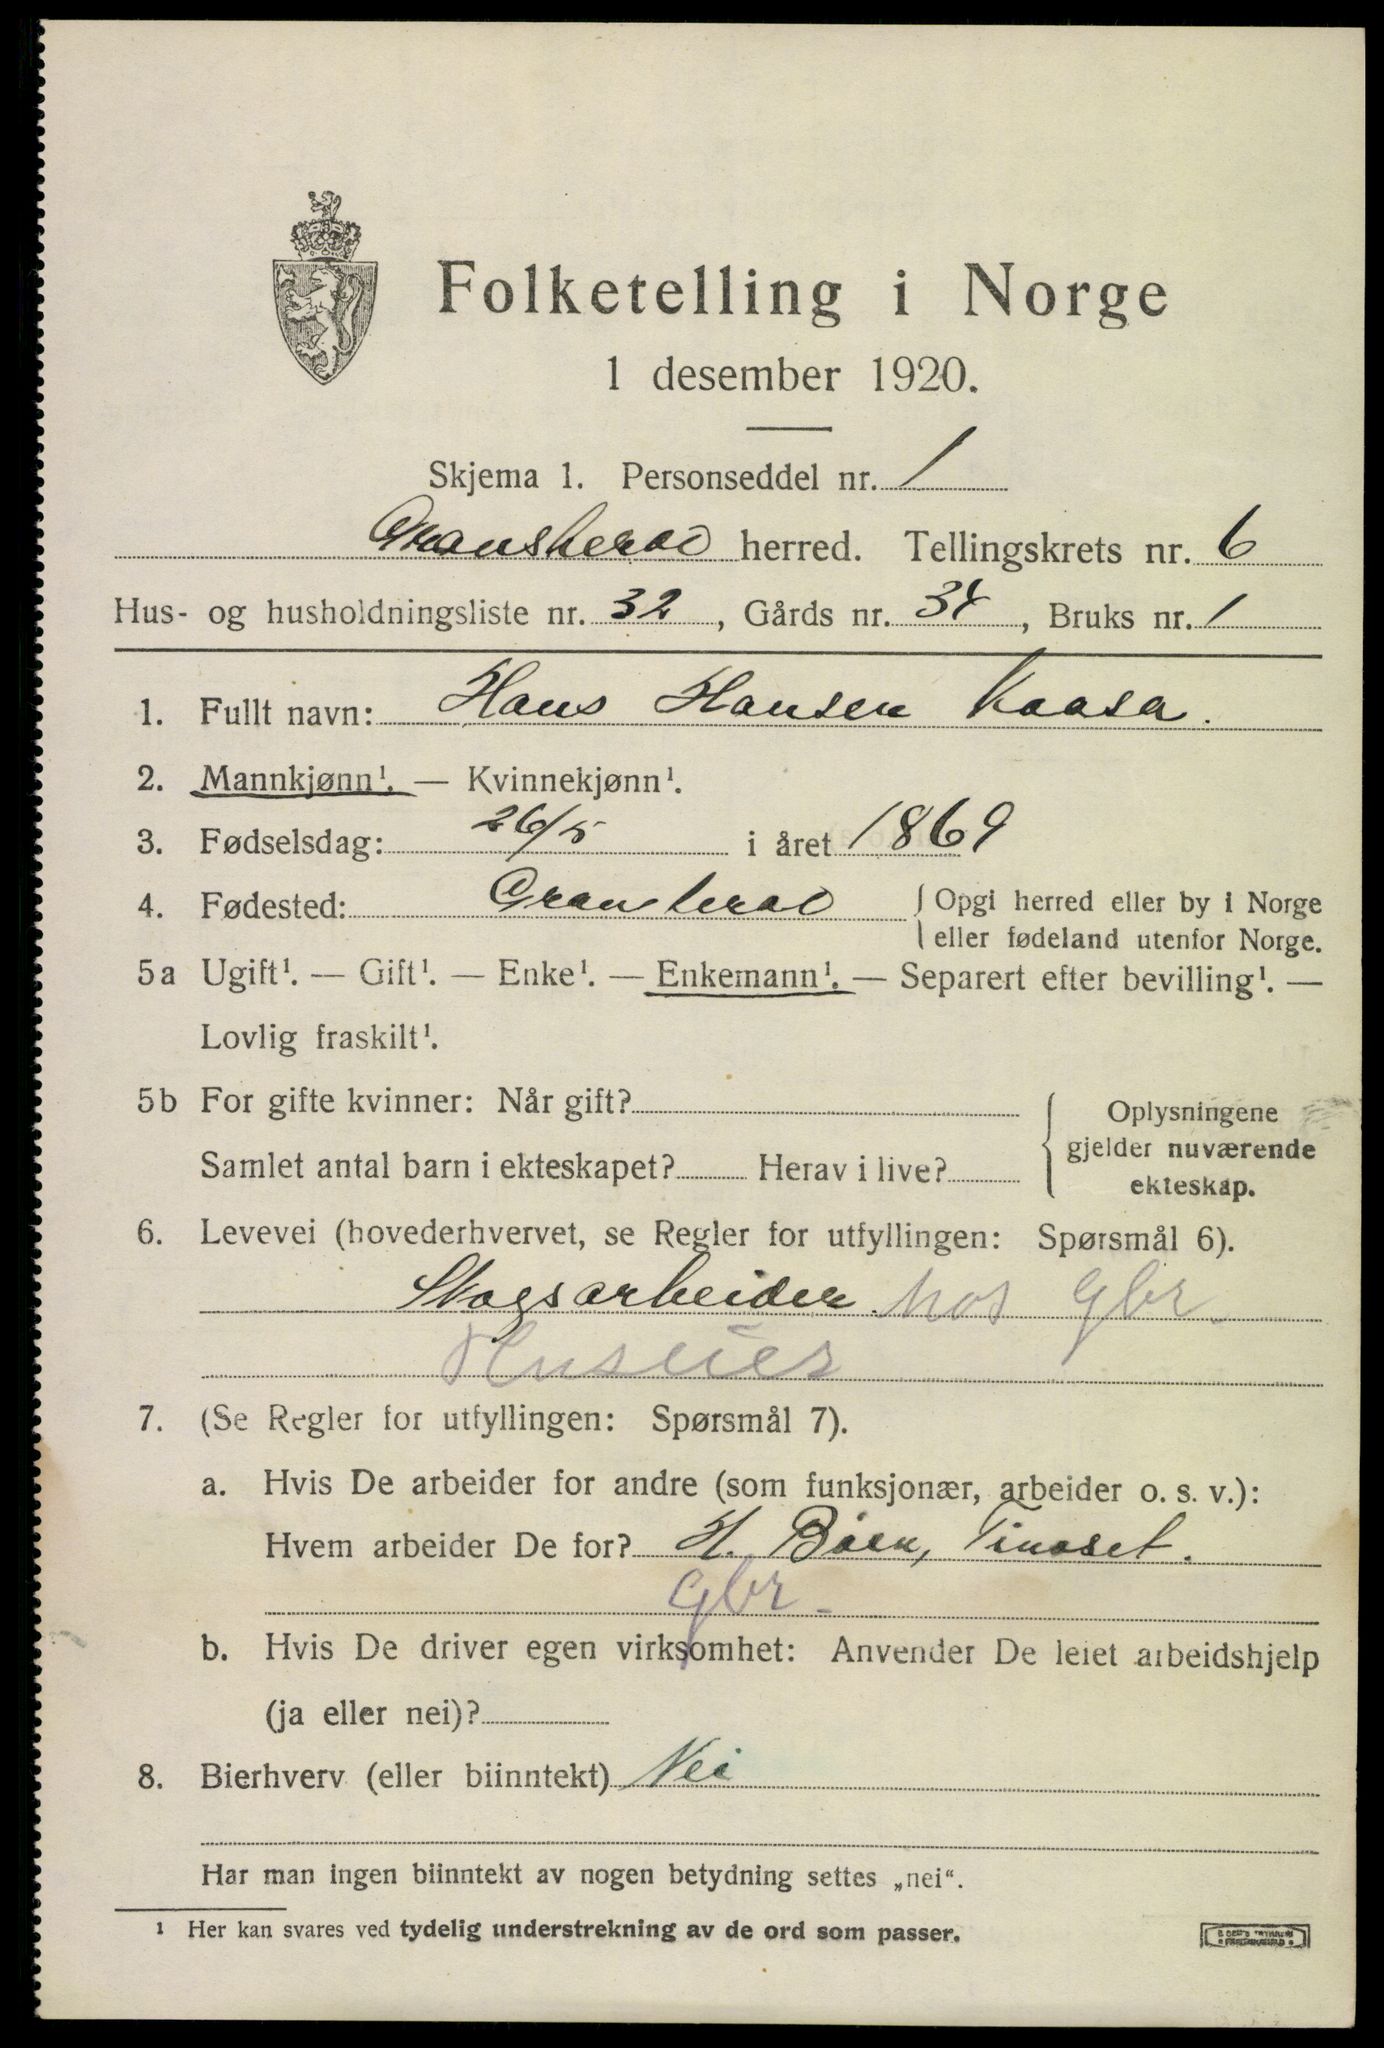 Folketelling i Norge
1 desember 1920.
Skjema 1. Personseddel nr. 1
Gransherad herred. Tellingskrets nr. 6
Hus- og husholdningsliste nr. 32, Gårds nr. 34, Bruks nr. 1
1. Fullt navn: Hans Hansen Kaasa.
2. Mannkjønn¹. — Kvinnekjønn¹.
3. Fødselsdag: 26/5 i året 1869
4. Fødested: Gransherad { Opgi herred eller by i Norge
eller fødeland utenfor Norge.
5a Ugift¹. — Gift¹. — Enke¹. — Enkemann¹. — Separert efter bevilling¹. —
Lovlig fraskilt¹.
5b For gifte kvinner: Når gift? { Oplysningene
gjelder nuværende
Samlet antal barn i ekteskapet? Herav i live?
ekteskap.
6. Levevei (hovederhvervet, se Regler for utfyllingen: Spørsmål 6).
Skogsarbeider hos Gbr.
7. (Se Regler for utfyllingen: Spørsmål 7).
a. Hvis De arbeider for andre (som funksjonær, arbeider o. s. v.):
Hvem arbeider De for? H. Bøen, Tinoset.
Gbr.
b. Hvis De driver egen virksomhet: Anvender De leiet arbeidshjelp
(ja eller nei)?
8. Bierhverv (eller biinntekt) Nei
Har man ingen biinntekt av nogen betydning settes „nei“.
¹ Her kan svares ved tydelig understrekning av de ord som passer.